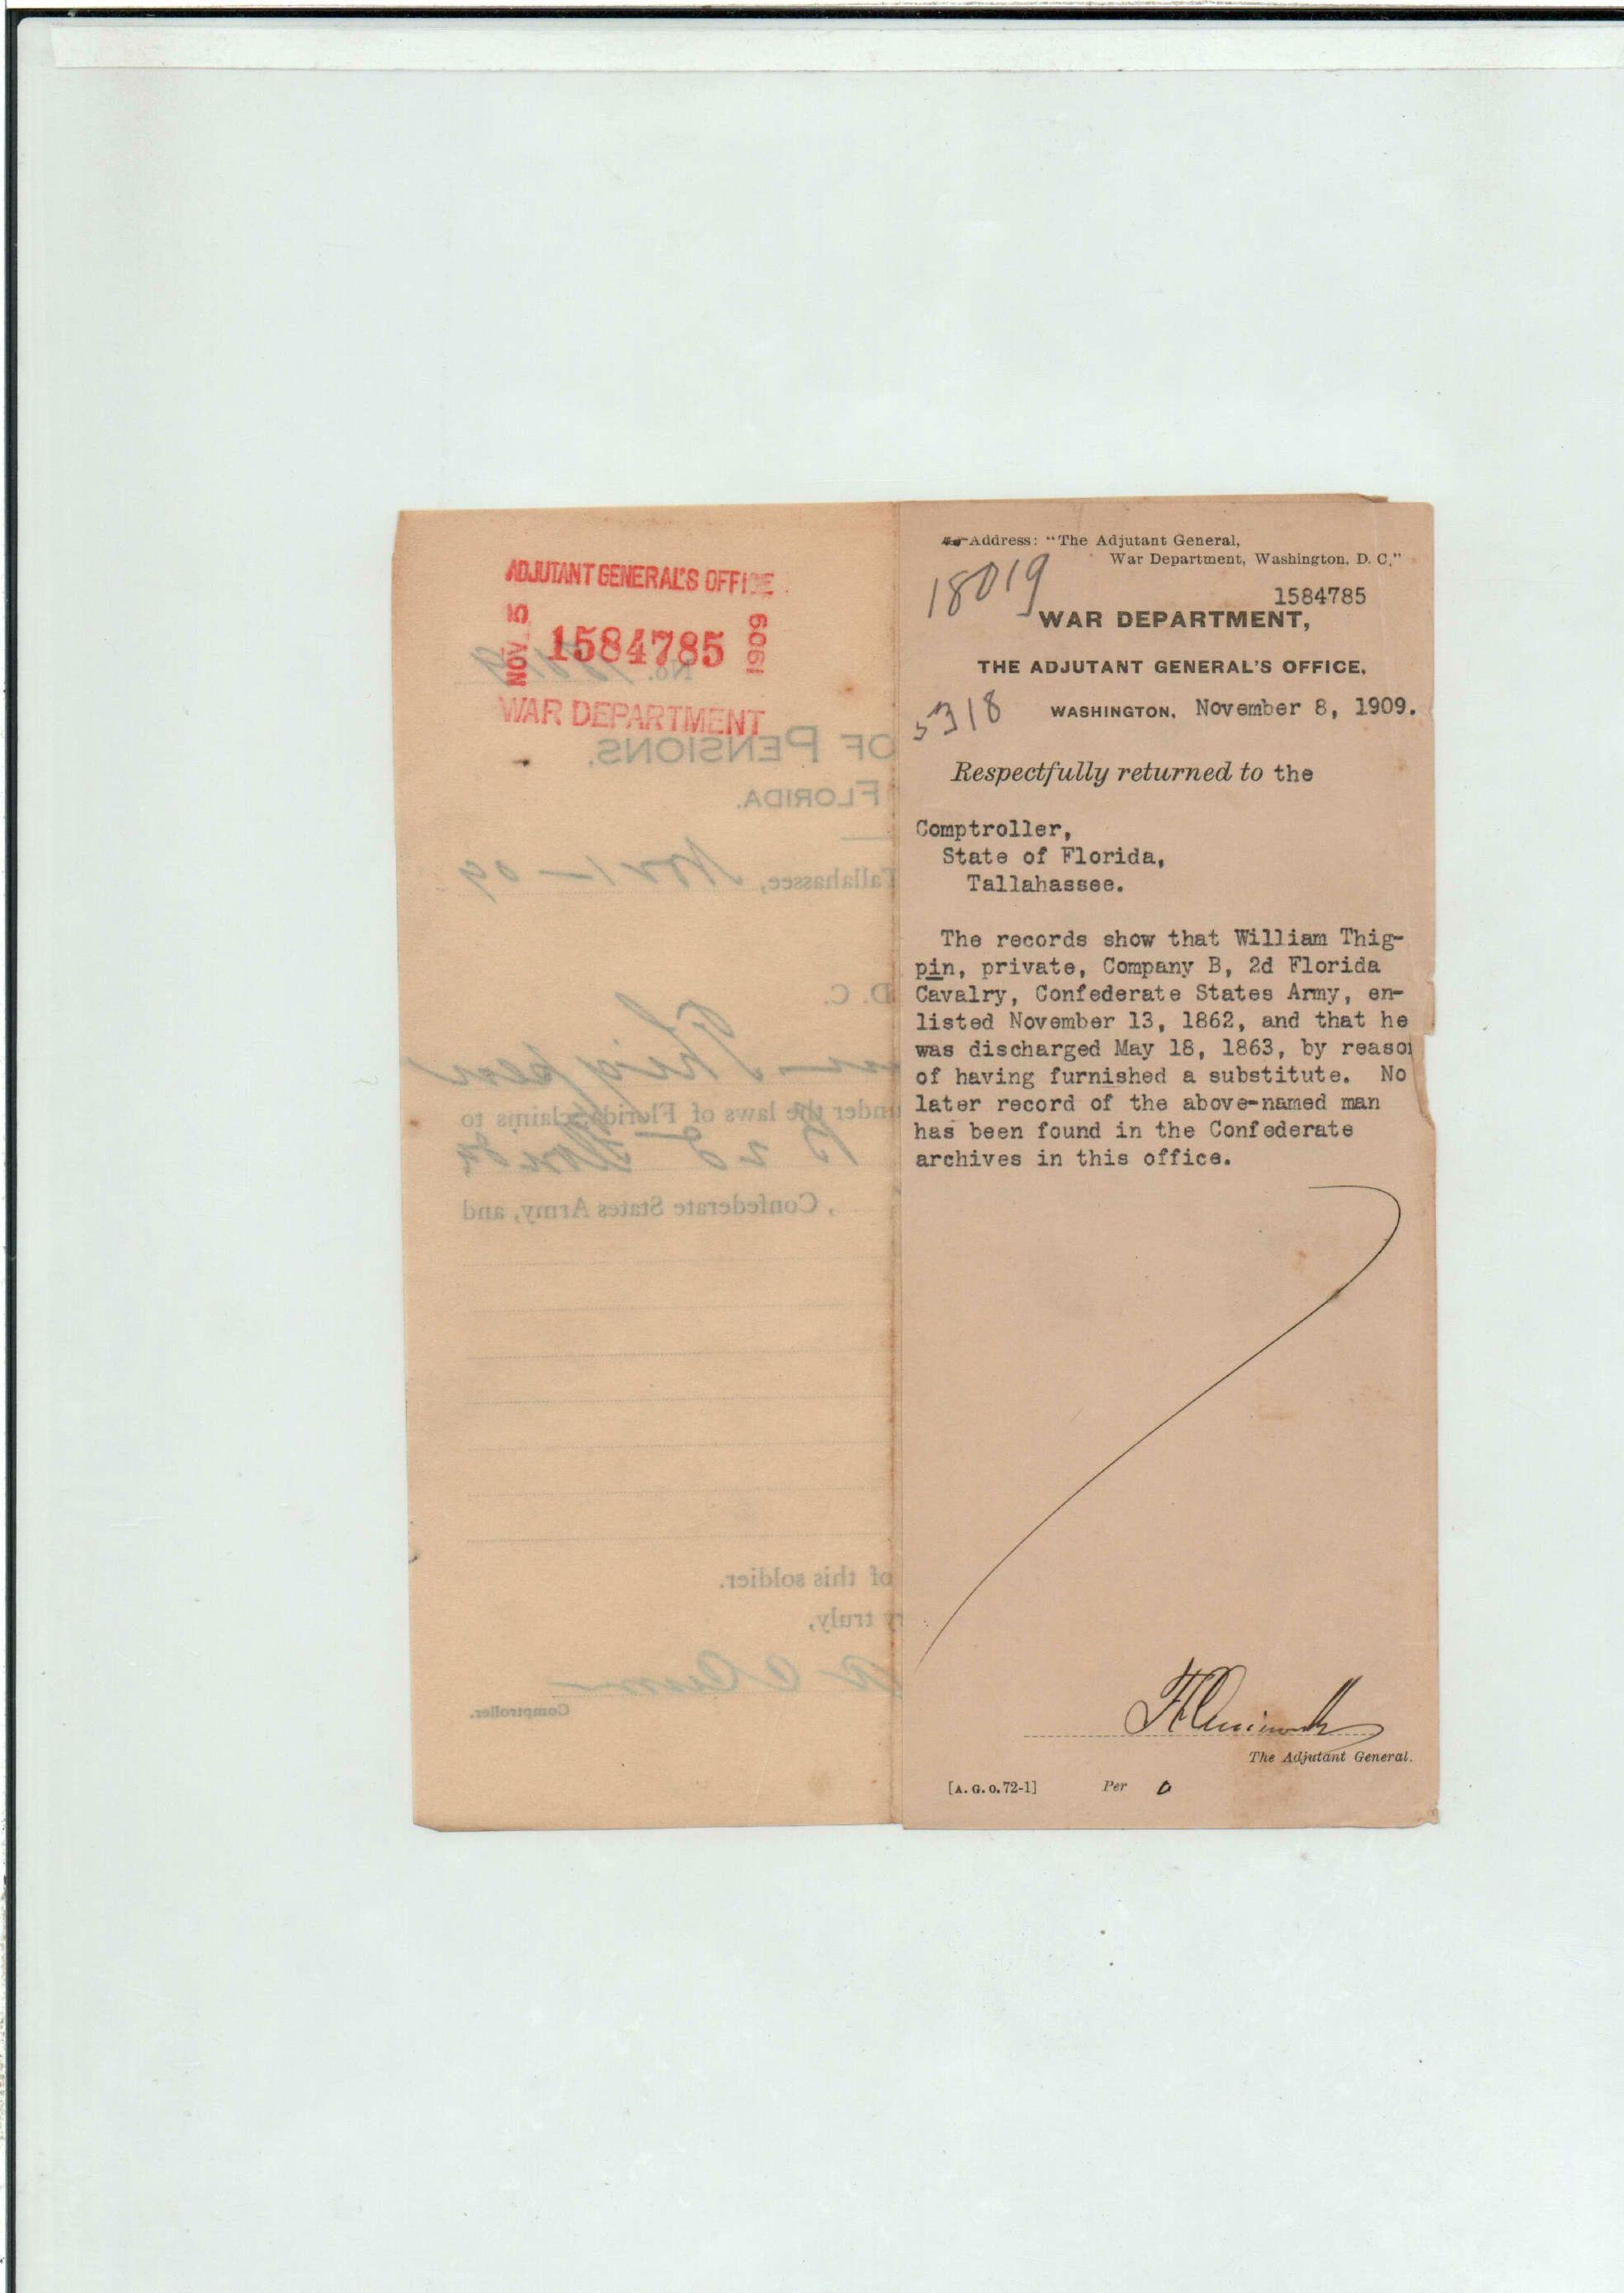 ADJUTANT GENERAL'S OFFICE
NOV. 5 1584785 1909
WAR DEPARTMENT
No.
OF PENSIONS.
FLORIDA.
Tallahassee, Nov 1 — 09
D. C.
Thigpen
under the laws of Florida, claims to
B 2d
, Confederate States Army, and
of this soldier.
truly,
Comptroller.
Address: "The Adjutant General,
War Department, Washington, D. C."
18019
1584785
WAR DEPARTMENT,
THE ADJUTANT GENERAL'S OFFICE,
5318
WASHINGTON, November 8, 1909.
Respectfully returned to the
Comptroller,
State of Florida,
Tallahassee.
The records show that William Thig-
pin, private, Company B, 2d Florida
Cavalry, Confederate States Army, en-
listed November 13, 1862, and that he
was discharged May 18, 1863, by reaso
of having furnished a substitute. No
later record of the above-named man
has been found in the Confederate
archives in this office.
The Adjutant General.
[A. G. O. 72-1] Per